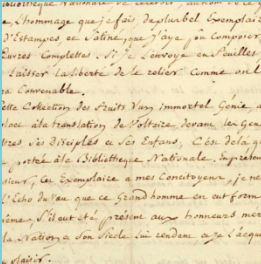 Bibliothèque Nationale de
l'hommage que je fais du plus bel Exemplaire
d'Estampes, et Satiné, que j'aye pû Composer
Œuvres Complettes. Si je l'envoye en feuilles
laisser la liberté de le relier Comme on l
ra Convenable.
ette Collection des fruits d'un immortel Génie a
place à la translation de Voltaire, devant les Gens
ttres ses Disciples et ses Enfans, C'est delà qu
portée à la Bibliothèque Nationale. En présent
cet Exemplaire a mes Concitoyens, je ne
l'Echo du Vœu que ce Grand homme en eut form
ième, S'il eut été présent aux honneurs mer
la Nation & Son Siècle lui rendent
plaisir.